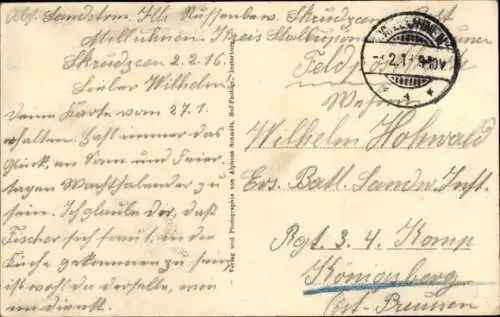 Abs. Sandstrm. Skrudzeen Post
Milluhnen. Kreis Stallupönen
Feldpost
Skrudzeen 2.2.16.
Lieber Wilhelm
Deine Karte vom 27.1.
erhalten. Hast immer das
Glück, an Sonn und Feier-
tagen Wachthabender zu
sein. Ich glaube dir, daß
Fischer sich freut, in die
Küche gekommen zu sein,
ist wohl derselbe, von
Verlag und Photographie von Alphons Schmidt, Hof-Photogr., Insterburg
Wehrm.
Wilhelm Hohwald
Ers. Batl. Landw. Inft.
Rgt. 3. 4. Komp
Königsberg
Ost-Preussen
MILLUHNEN